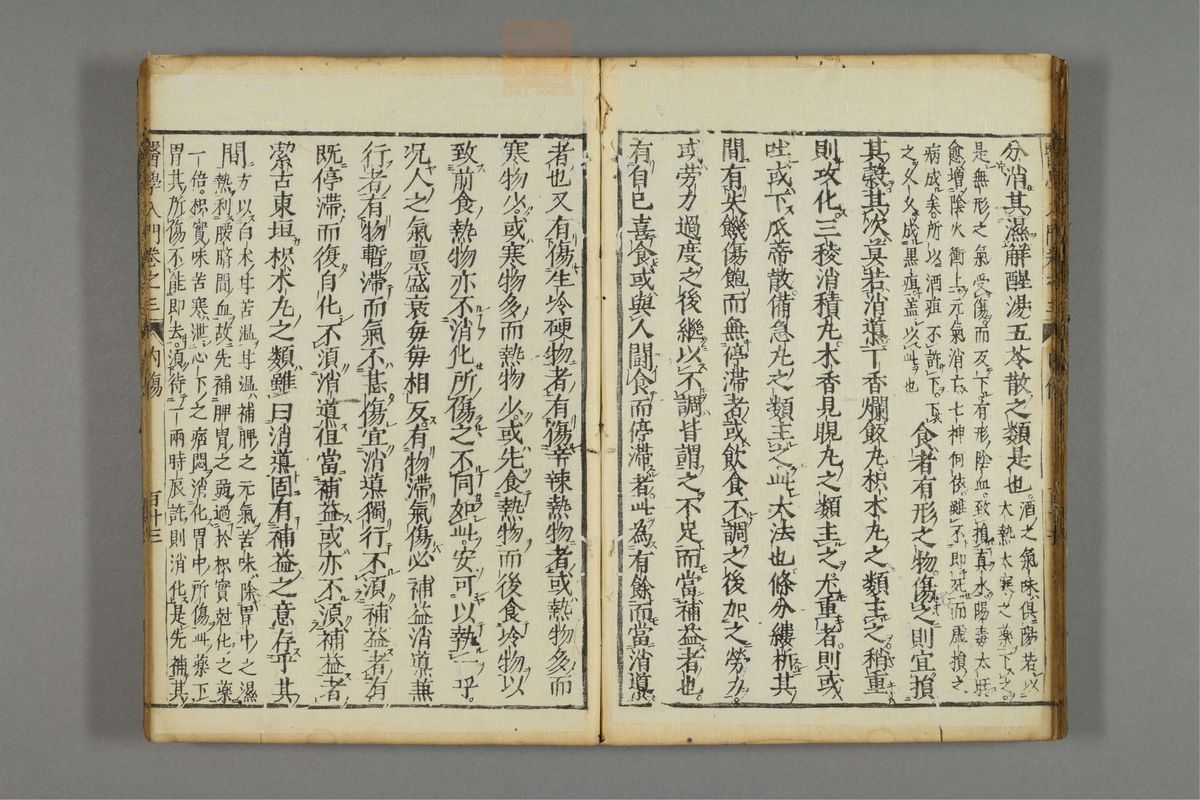 分消其濕解醒湯五苓散之類是也
酒之氣味俱陽若以
大熱大寒之藥下之
是無形之氣受傷而反下有形陰血致損真水陽毒太旺
愈增陰火衝上元氣消亡七神何依雖不即死而虛損之
病成矣所以酒疸不許下下
之久久成黑疸盖以此也
食者有形之物傷之則宜損
其穀其次莫若消導丁香爛飯丸枳朮丸之類主之稍重
則攻化三稜消積丸木香見睍丸之類主之尤重者則或
吐或下瓜蒂散備急丸之類主之此大法也條分縷析其
間有失饑傷飽而無停滯者或飲食不調之後加之勞力
或劳力過度之後繼以不調皆謂之不足而當補益者也
有自已喜食或與人鬪食而停滯者此為有餘而當消導
者也又有傷生冷硬物者有傷辛辣熱物者或熱物多而
寒物少或寒物多而熱物少或先食熱物而後食冷物以
致前食熱物亦不消化所傷之不同如此安可以執一乎
况人之氣禀盛衰每每相反有物滯氣傷必補益消導兼
行者有物暫滯而氣不甚傷宜消導獨行不須補益者有
既停滯而復自化不須消導但當補益或亦不須補益者
潔古東垣枳朮丸之類雖曰消導固有補益之意存乎其
間
方以白朮甘苦温甘温補脾之元氣苦味除胃中之濕
熱利腰臍間血故先補脾胃之弱過於枳實尅化之藥
一倍枳實味苦寒泄心下之痞悶消化胃中所傷此藥下
胃其所傷不能即去須待一兩時辰許則消化是先補其
醫學入門卷之三
內傷
百十三